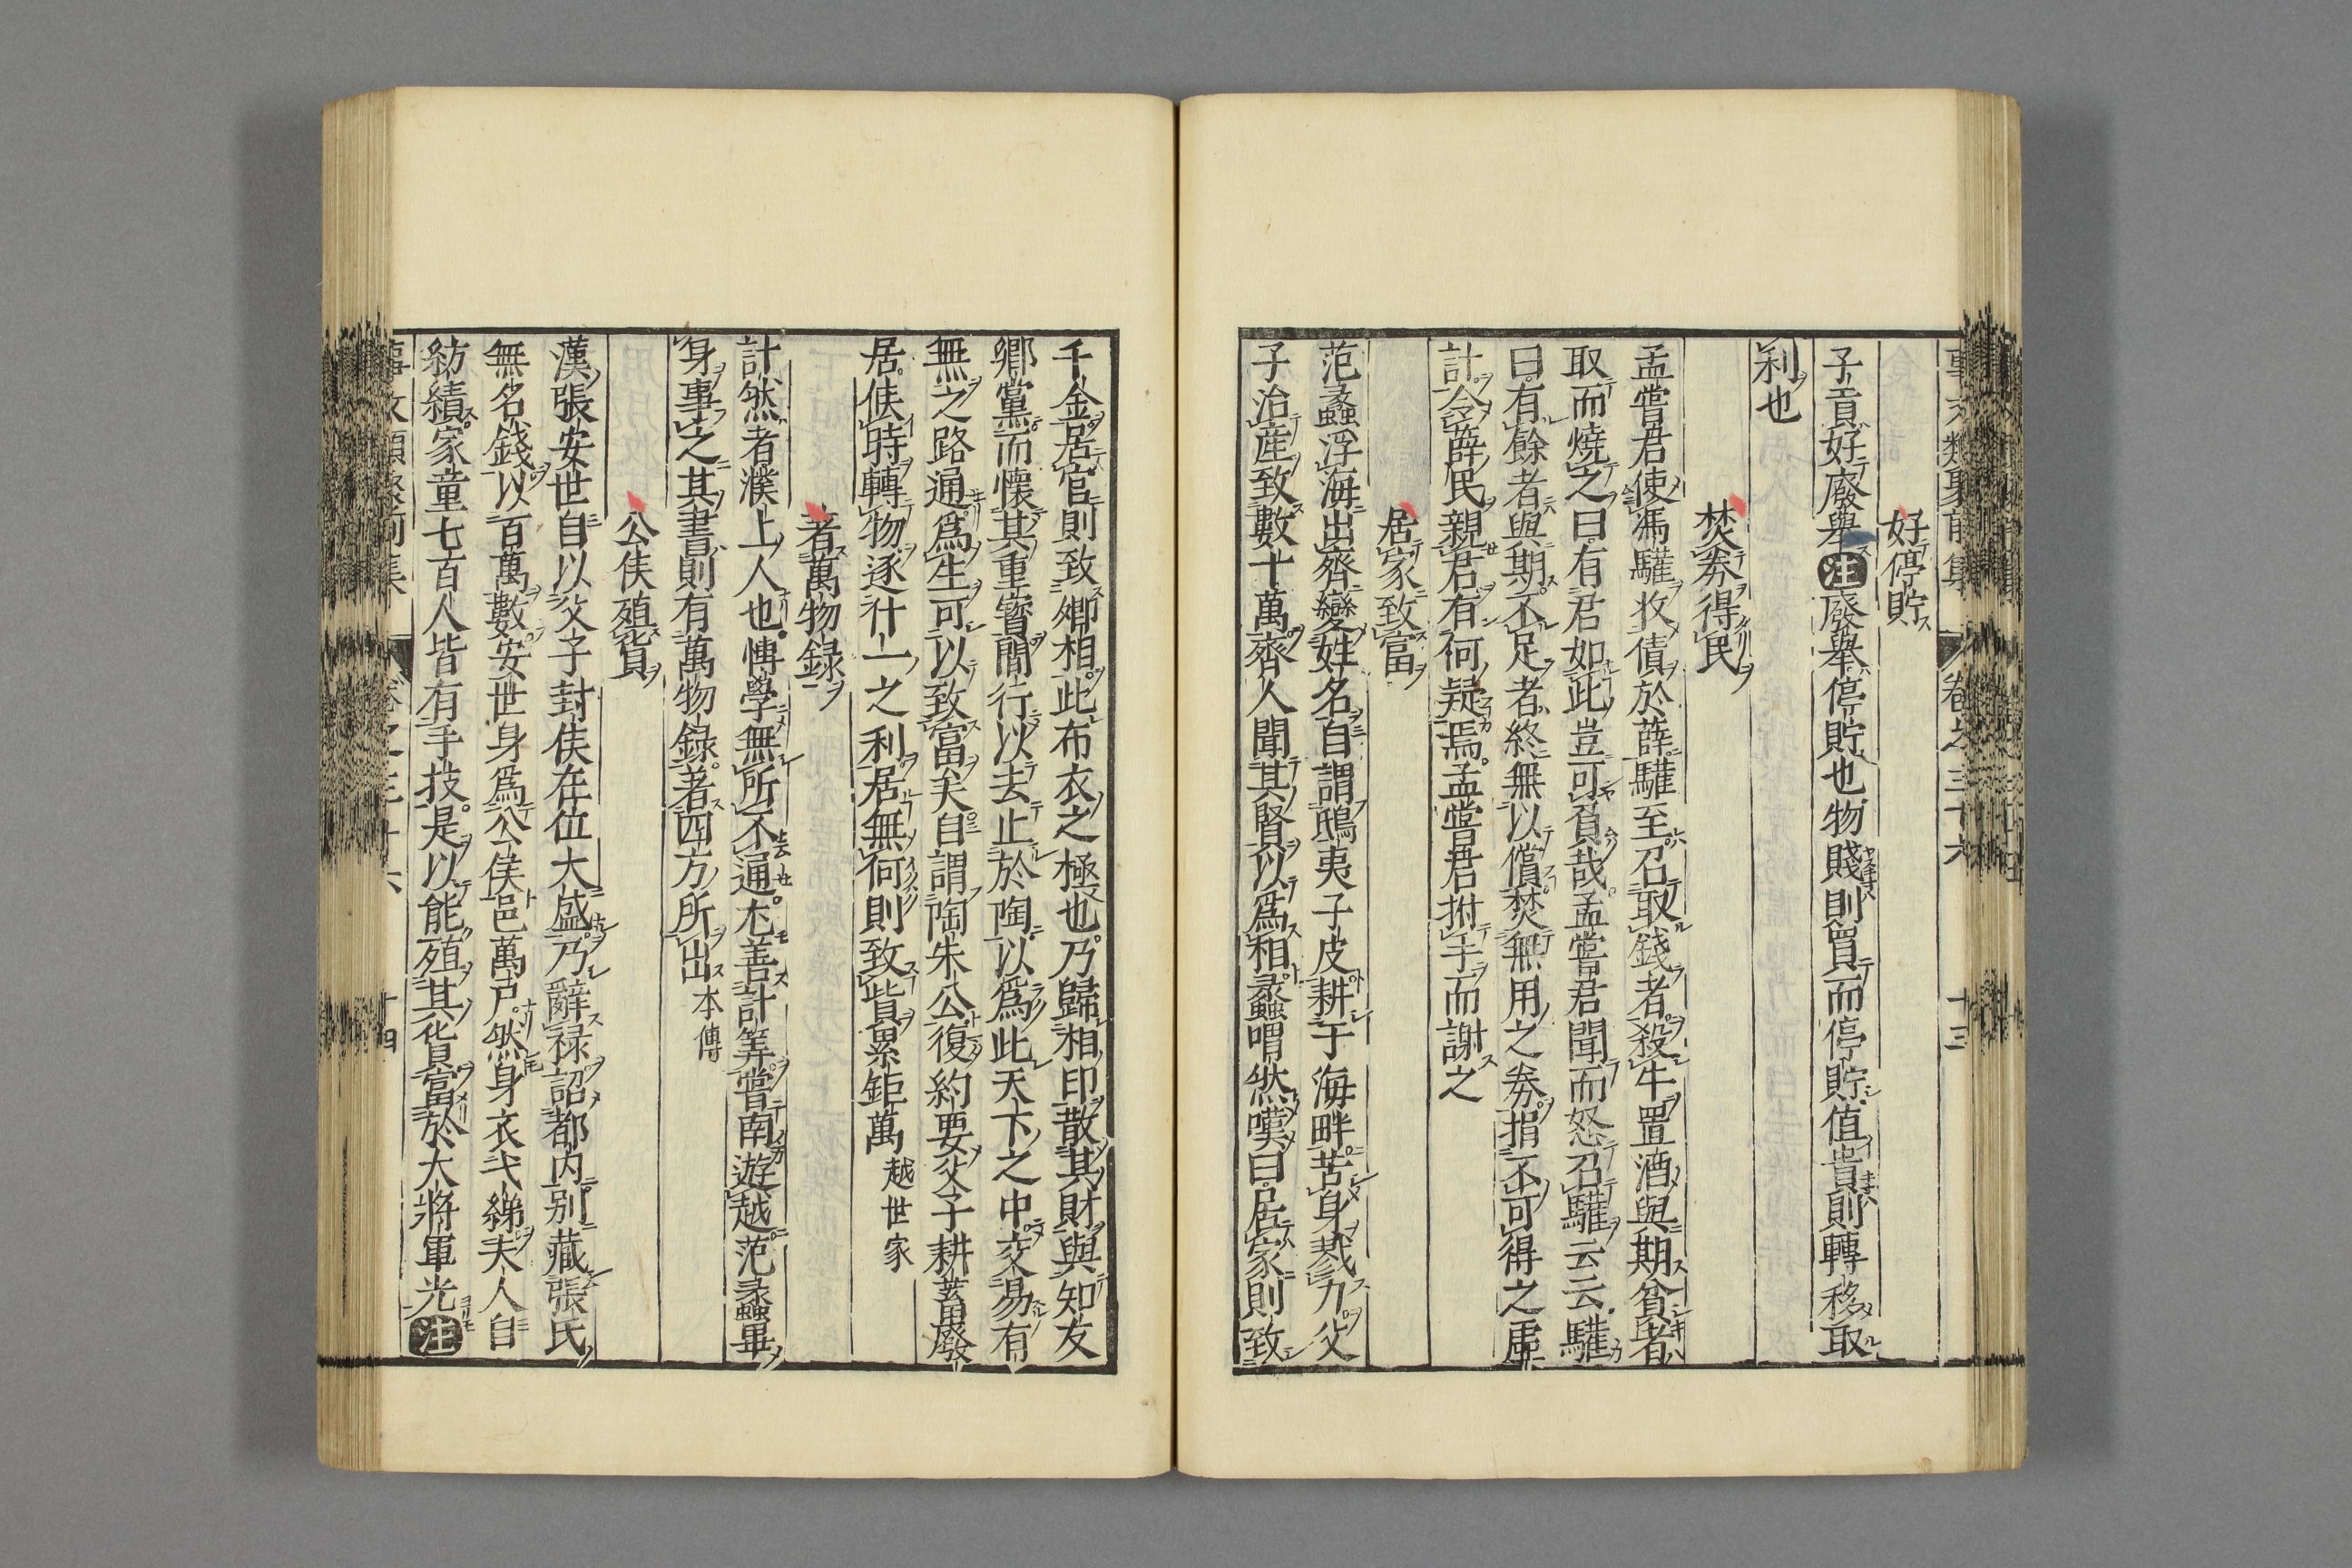 好停貯
子貢好廢舉注廢舉停貯也物賤則買而停貯値貴則轉移取
利也
焚券得民
孟嘗君使馮驩收債於薛驩至召取錢者殺牛置酒與期貧者
取而燒之曰有君如此豈可負哉孟嘗君聞而怒召驩云云驩
曰有餘者與期不足者終無以償焚無用之券捐不可得之虛
計令薛民親君有何疑焉孟嘗君拊手而謝之
居家致富
范蠡浮海出齊變姓名自謂鴟夷子皮耕于海畔苦身戮力父
子治産致數十萬齊人聞其賢以爲相蠡喟然嘆曰居家則致
千金居官則致卿相此布衣之極也乃歸相印散其財與知友
鄉黨而懷其重寳間行以去止於陶以爲此天下之中交易有
無之路通爲生可以致富矣自謂陶朱公復約要父子耕畜廢
居俟時轉物逐什一之利居無何則致貲累鉅萬越世家
著萬物録
計然者濮上人也博學無所不通尤善計筭嘗南遊越范蠡畢
身事之其書則有萬物録著四方所出本傳
公侯殖貨
漢張安世自以父子封侯在位大盛乃辭禄詔都内別藏張氏
無名錢以百萬數安世身爲公侯邑萬戸然身衣弋綈夫人自
紡績家童七百人皆有手技是以能殖其貨富於大將軍光注